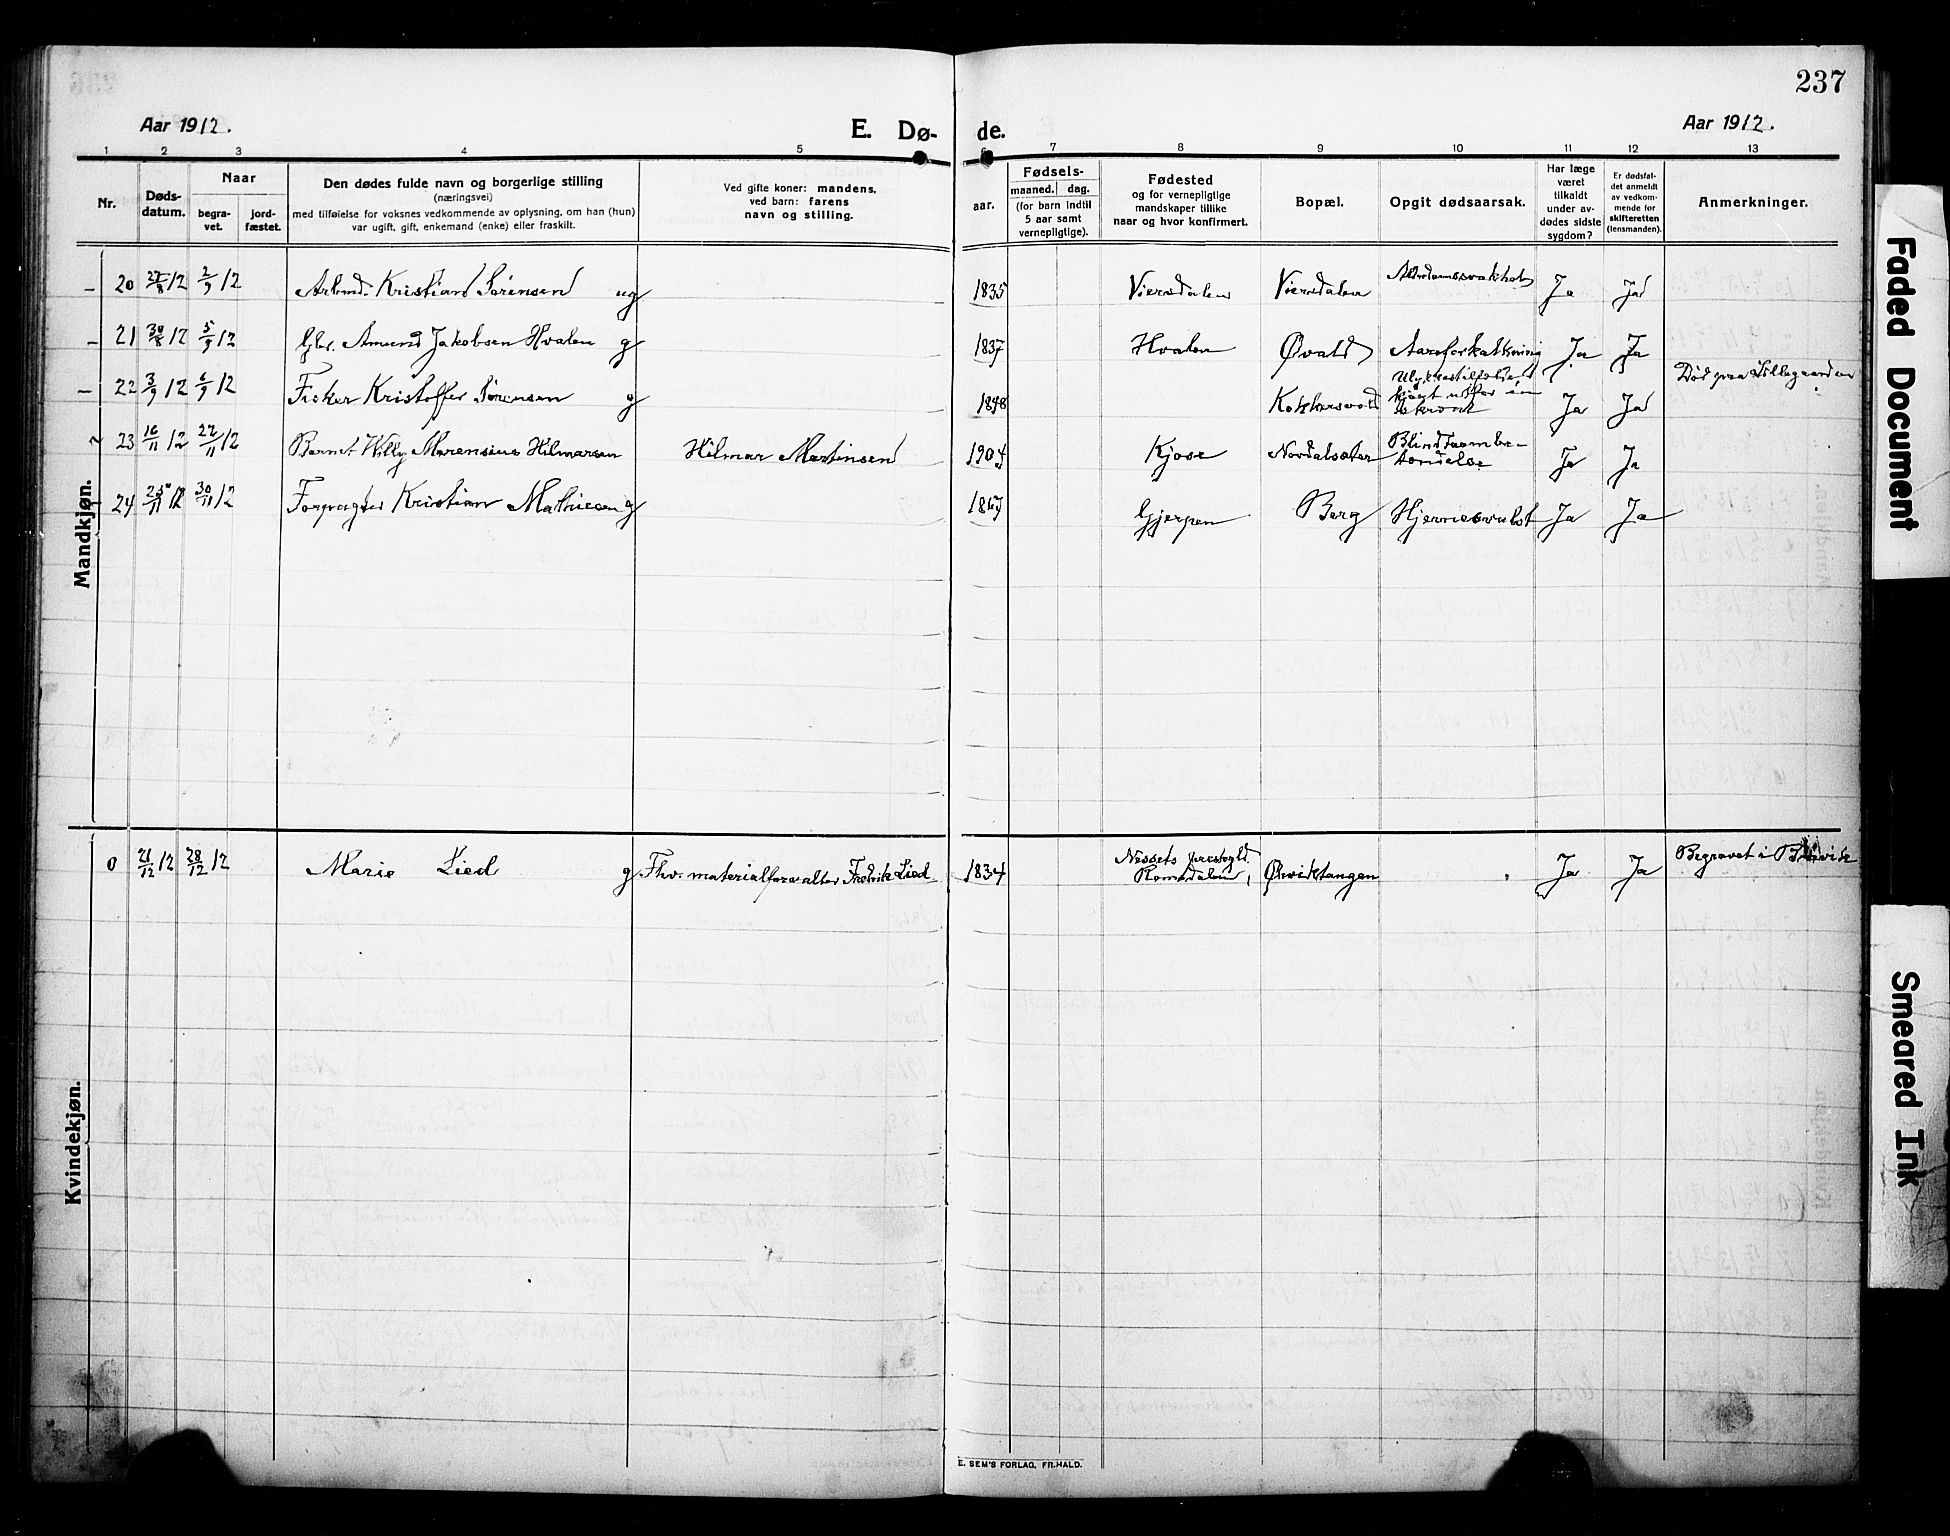 237
Aar 1912.
E. Dø-
de.
Aar 1912.
1 2 3 4 5 6 7 8 9 10 11 12 13
Nr.
Døds-
datum.
Naar
begra-
vet.
jord-
fæstet.
Den dødes fulde navn og borgerlige stilling
(næringsvei)
med tilføielse for voksnes vedkommende av oplysning, om han (hun)
var ugift, gift, enkemand (enke) eller fraskilt.
Ved gifte koner: mandens,
ved barn: farens
navn og stilling.
aar.
Fødsels-
maaned. dag.
(for barn indtil
5 aar samt
vernepligtige).
Fødested
og for vernepligtige
mandskaper tillike
naar og hvor konfirmert.
Bopæl.
Opgit dødsaarsak.
Har læge
været
tilkaldt
under av-
dødes sidste
sygdom?
Er dødsfal-
det anmeldt
av vedkom-
mende for
skifteretten
(lensmanden).
Anmerkninger.
Mandkjøn.
20 27/8 12 2/9 12 Arbmd. Kristian Sørensen ug 1835 Viersdalen Viersdalen Alderdomssvakhet Ja Ja
21 30/8 12 5/9 12 Gbr. Amund Jakobsen Hvalen g 1837 Hvalen Øvald Aareforkalkning Ja Ja
22 3/9 12 6/9 12 Fisker Kristoffer Sørensen g 1848 Ja Ja Død paa Lillegaarden
23 16/11 12 22/11 12 Barnet Willy Marensius Hilmarsen Hilmar Martinsen 1904 Kjose Nordalsæter Blindtarmbe-
tændelse Ja Ja
24 25/11 12 30/11 12 Forpagter Kristian Mathiesen g 1867 Gjerpen Berg Hjernesvulst Ja Ja
Kvindekjøn.
0 21/12 12 28/12 12 Marie Lied g Fhv. materialforvalter Fredrik Lied 1834 Nessets prestegld.
Romsdalen, Økviktangen Ja Ja Begravet i
E. SEM'S FORLAG, FR.HALD.
Faded Document
Smeared Ink